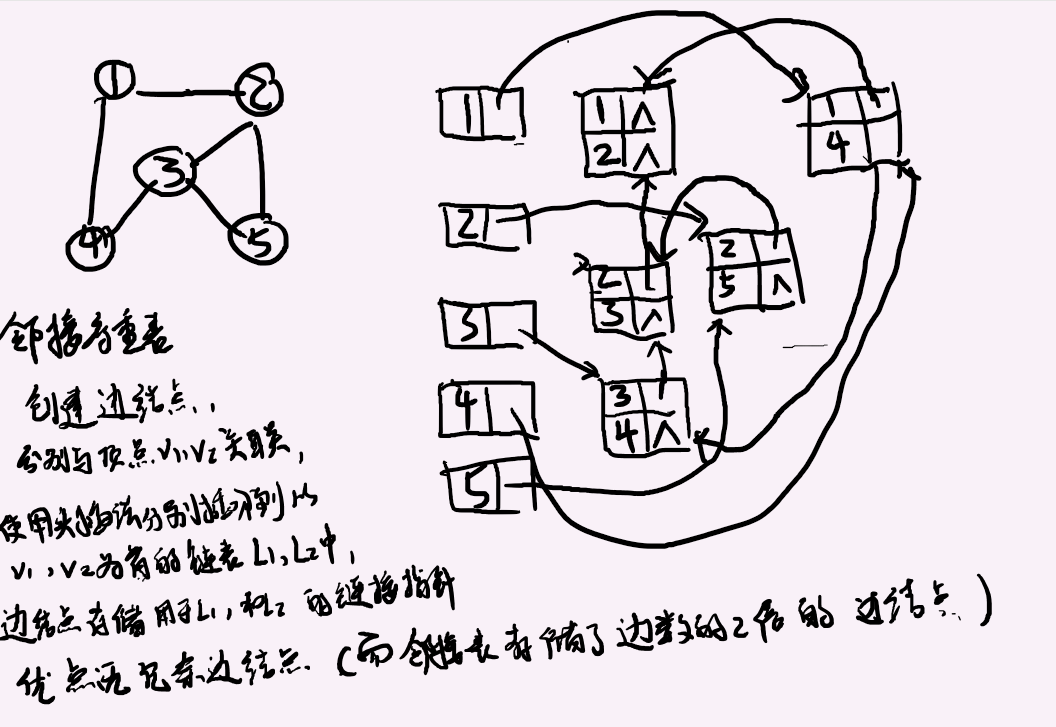 1
2
3
4
5
1
1 ∧
2 ∧
1
4
2
2
3 ∧
2
5 ∧
3
3
4 ∧
4
5
邻接多重表
创建边结点,
分别与顶点v1,v2关联,
使用头插法分别插到以
v1,v2为首的链表L1,L2中,
边结点存储用于L1,和L2的链接指针
优点无冗杂边结点.(而邻接表存储了边数的2倍的边结点.)